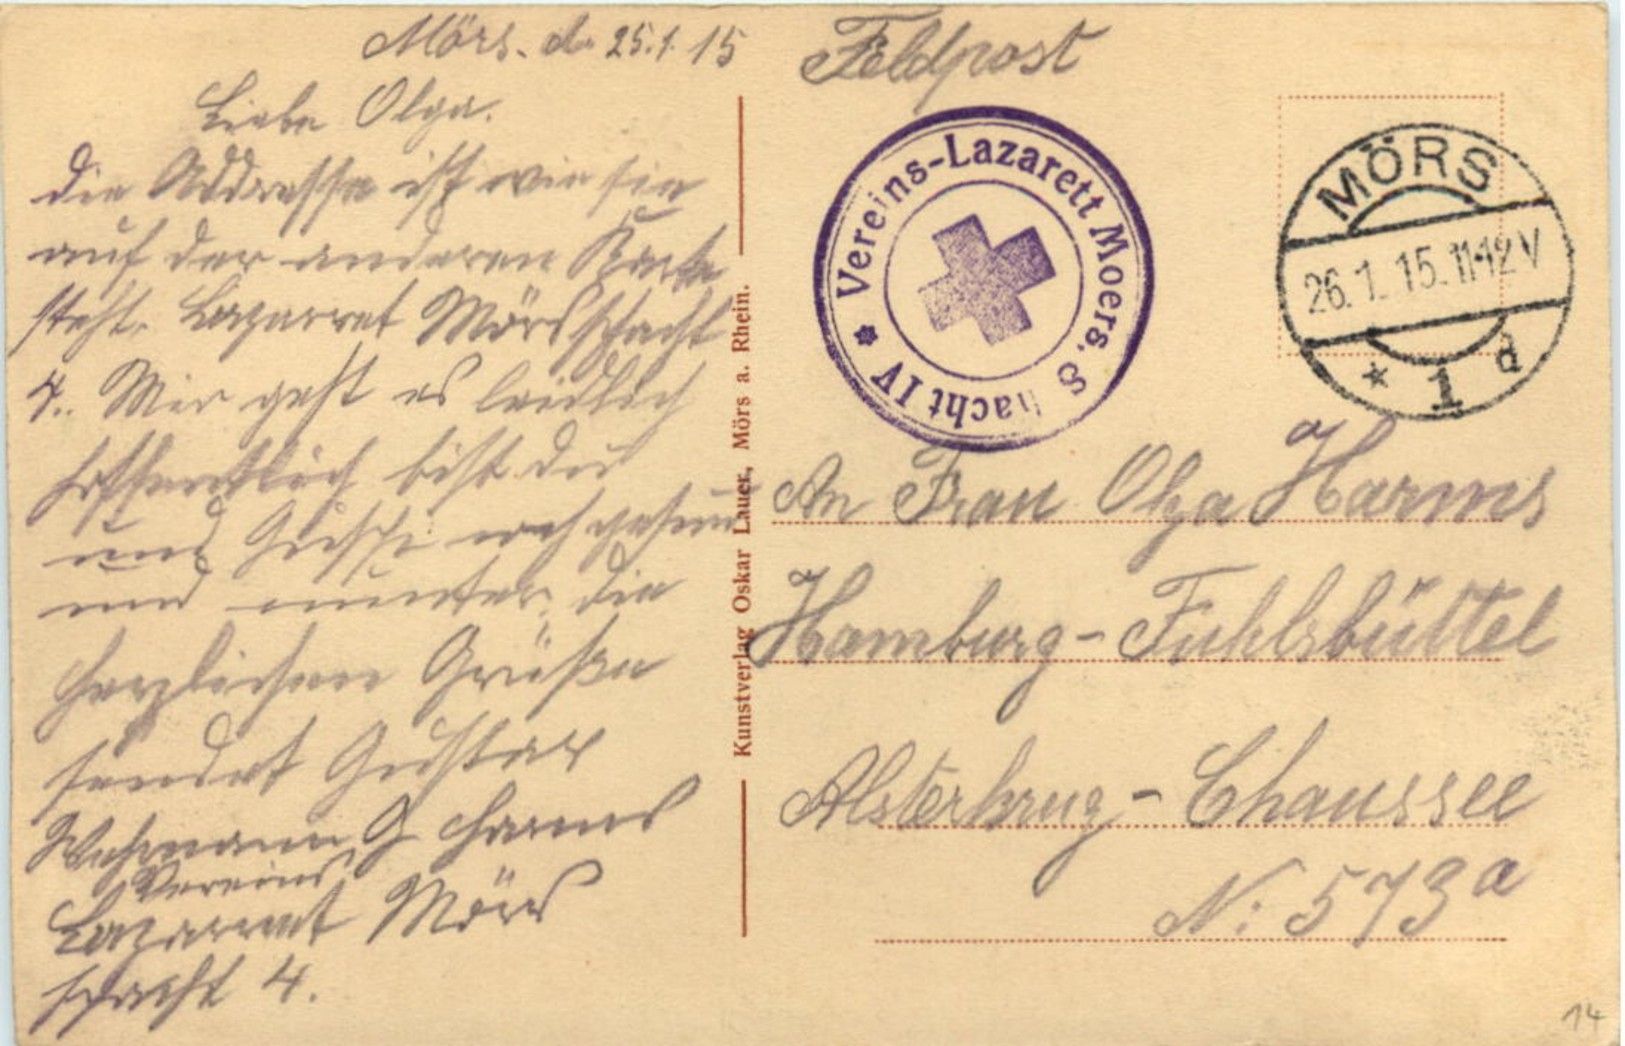 Mörs. d. 25.1.15
Liebe Olga.
die Addresse ist wie sie
auf der anderen Karte
steht. Lazarret Mörs Schacht
4. Mir geht es leidlich
hoffentlich bist du
und noch gesund
und munter. die
herzlichen Grüße
sendet Gustav
Wehrmann G Harms
Vereins
Lazarret Mörs
schacht 4.
Kunstverlag Oskar Lauer, Mörs a. Rhein.
Feldpost
Vereins-Lazarett Moers. S hacht IV *
MÖRS
26.1.15.11-12V
* 1 d
An Frau Olga Harms
Hamburg-Fuhlsbüttel
Alsterkrug-Chaussee
N: 573a
14